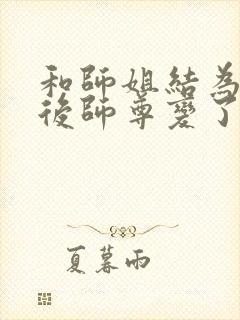 和師姐結為
後師尊變了
夏暮雨